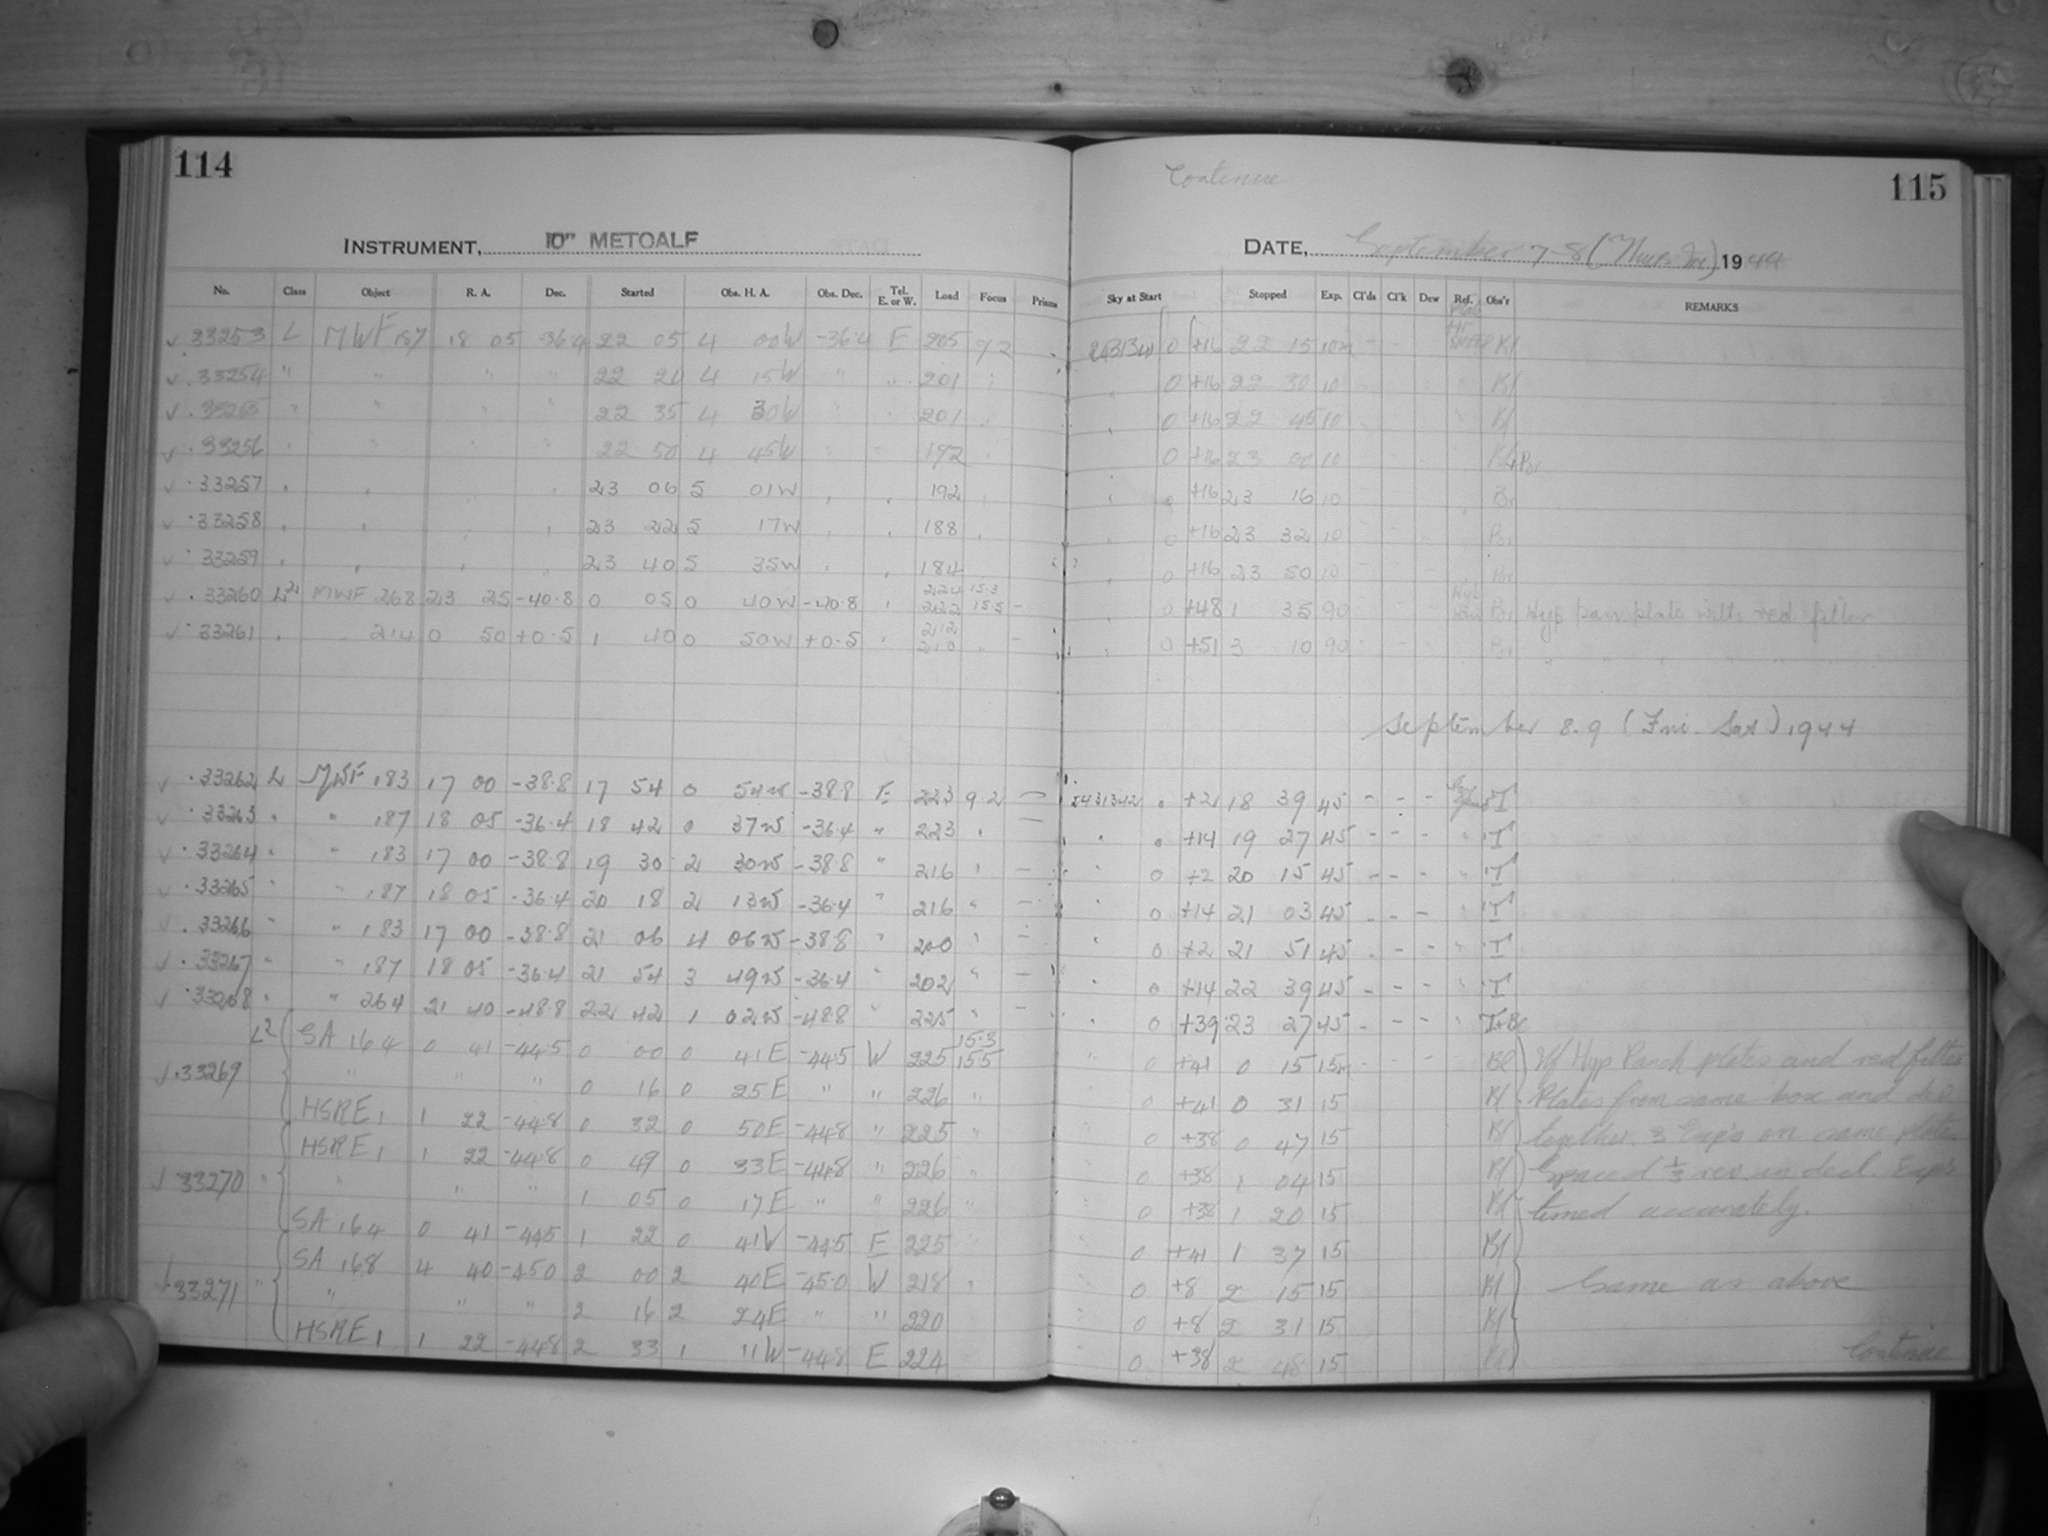 114
INSTRUMENT, 10" METCALF
No. Class Object R. A. Dec. Started Obs. H. A. Obs. Dec. Tel. E. or W. Load Focus Prisms
33253 L MWF 187 18 05 -36.4 22 05 4 00W -36.4 E 205 9.2
33254 " " " " 22 20 4 15W " " 201 "
33255 " " " " 22 35 4 30W " " 201
33256 " " " " 22 50 4 45W " " 192
33257 " " " " 23 06 5 01W " " 192
33258 " " " " 23 22 5 17W " " 188
33259 " " " " 23 40 5 35W " " 184
33260 L2 MWF 268 23 25 -40.8 0 05 0 40W -40.8 " 224 222 15.3 15.5 -
33261 " " 214 0 50 +0.5 1 40 0 50W +0.5 " 212 210 " -
33262 L MWF 183 17 00 -38.8 17 54 0 54W -38.8 E 223 9.2 -
33263 " " 187 18 05 -36.4 18 42 0 37W -36.4 " 223 " -
33264 " " 183 17 00 -38.8 19 30 2 30W -38.8 " 216 " -
33265 " " 187 18 05 -36.4 20 18 2 13W -36.4 " 216 " -
33266 " " 183 17 00 -38.8 21 06 4 06W -38.8 " 200 " -
33267 " " 187 18 05 -36.4 21 54 3 49W -36.4 " 202 " -
33268 " " 264 21 40 -48.8 22 42 1 02W -48.8 " 225 " -
L2 SA 164 0 41 -44.5 0 00 0 41E -44.5 W 225 15.3 15.5
33269 " " " 0 16 0 25E " " 226 "
HSRE 1 1 22 -44.8 0 32 0 50E -44.8 " 225 "
HSRE 1 1 22 -44.8 0 49 0 33E -44.8 " 226 "
33270 " " " " 1 05 0 17E " " 226 "
SA 164 0 41 -44.5 1 22 0 41W -44.5 E 225
SA 168 4 40 -45.0 2 00 2 40E -45.0 W 218 "
33271 " " " " 2 16 2 24E " " 220
HSRE 1 1 22 -44.8 2 33 1 11W -44.8 E 224
Continue
115
DATE, September 7-8 (Thur-Fri) 1944
Sky at Start Stopped Exp. Cl'ds Cl'k Dew Ref. Obs'r REMARKS
2431341 0 +16 22 15 10m - Bl
0 +16 22 30 10 Bl
0 +16 22 45 10 Bl
0 +16 23 00 10
0 +16 23 16 10
0 +16 23 32 10
0 +16 23 50 10
0 +48 1 35 90 Hyp pan plate with red filter
0 +51 3 10 90 " " " "
September 8.9 (Fri. Sat) 1944
2431342 0 +2 18 39 45 - - - T
0 +14 19 27 45 - - - " T
0 +2 20 15 45 - - - " T
0 +14 21 03 45 - - - " T
0 +2 21 51 45 - - - " T
0 +14 22 39 45 - - - " T
0 +39 23 27 45 - - - " T+Bl
0 +41 0 15 15m - - - Bl Hyp Panch plates and red filter
0 +41 0 31 15 Bl Plates from same box and dev.
0 +38 0 47 15 Bl together. 3 Exp's on same plate
0 +38 1 04 15 Bl Spaced 1/3 rev. in decl. Exp's
0 +38 1 20 15 Bl timed accurately.
0 +41 1 37 15 Bl
0 +8 2 15 15 Bl Same as above
0 +8 2 31 15 Bl
0 +38 2 48 15 Bl
Continue